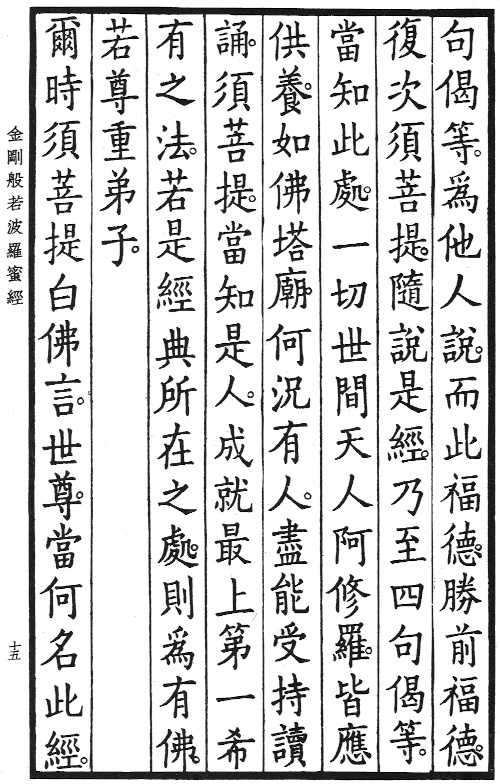 句偈等。為他人說。而此福德。勝前福德。
復次須菩提。隨說是經。乃至四句偈等。
當知此處。一切世間天人阿修羅。皆應
供養。如佛塔廟。何況有人。盡能受持讀
誦。須菩提。當知是人。成就最上第一希
有之法。若是經典所在之處。則為有佛。
若尊重弟子。
爾時須菩提白佛言。世尊。當何名此經。
金剛般若波羅蜜經
十五